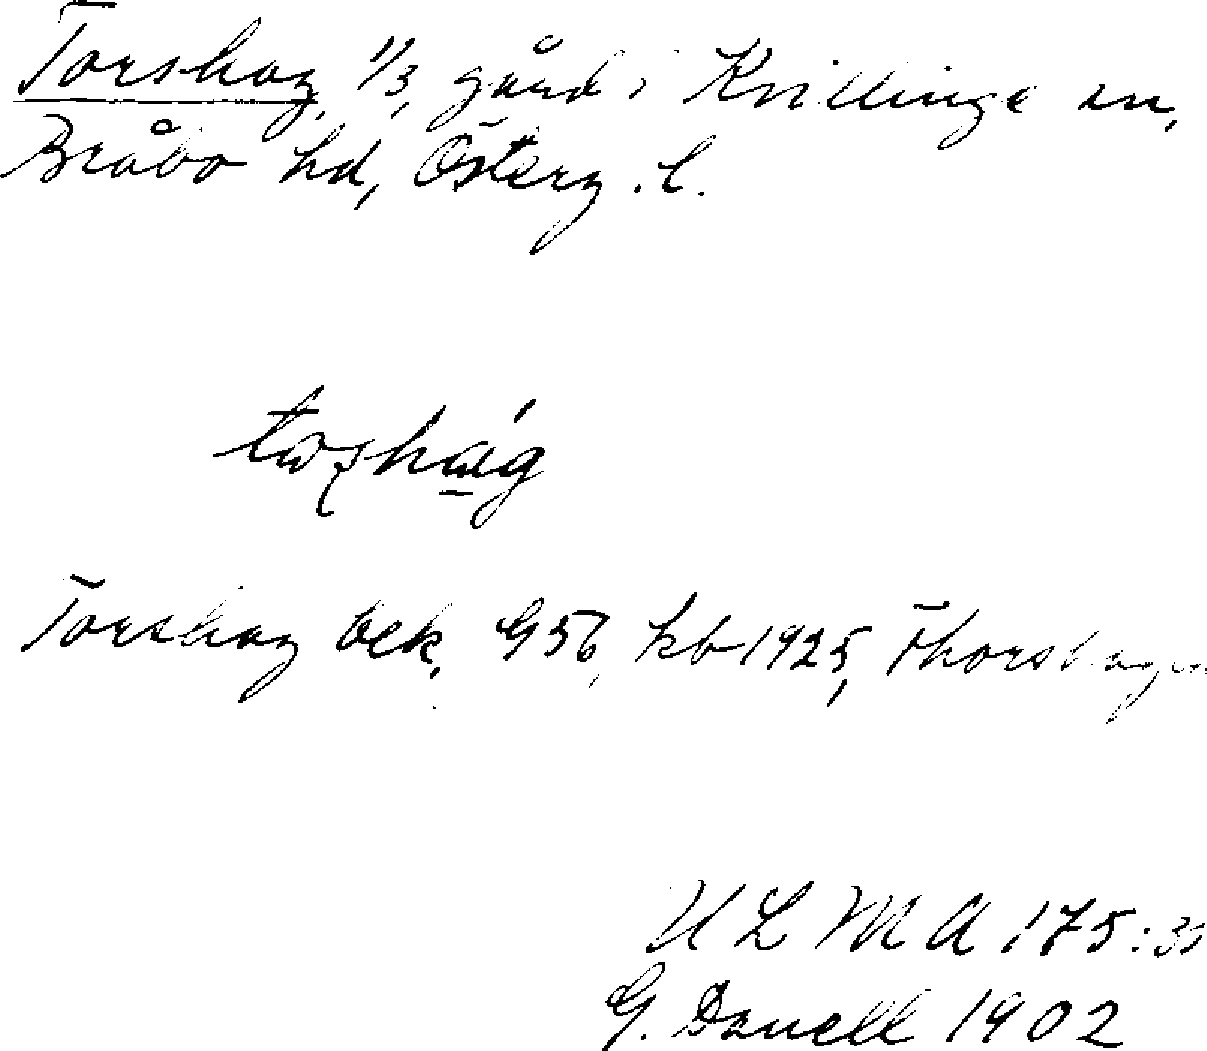 Torshag, 1/3, gård i Kvillinge sn,
Bråbo hd, Österg. l.
Torshag bek. G 56, kb 1925, Thorshagen
U L M A 175:
G. Danell 1902